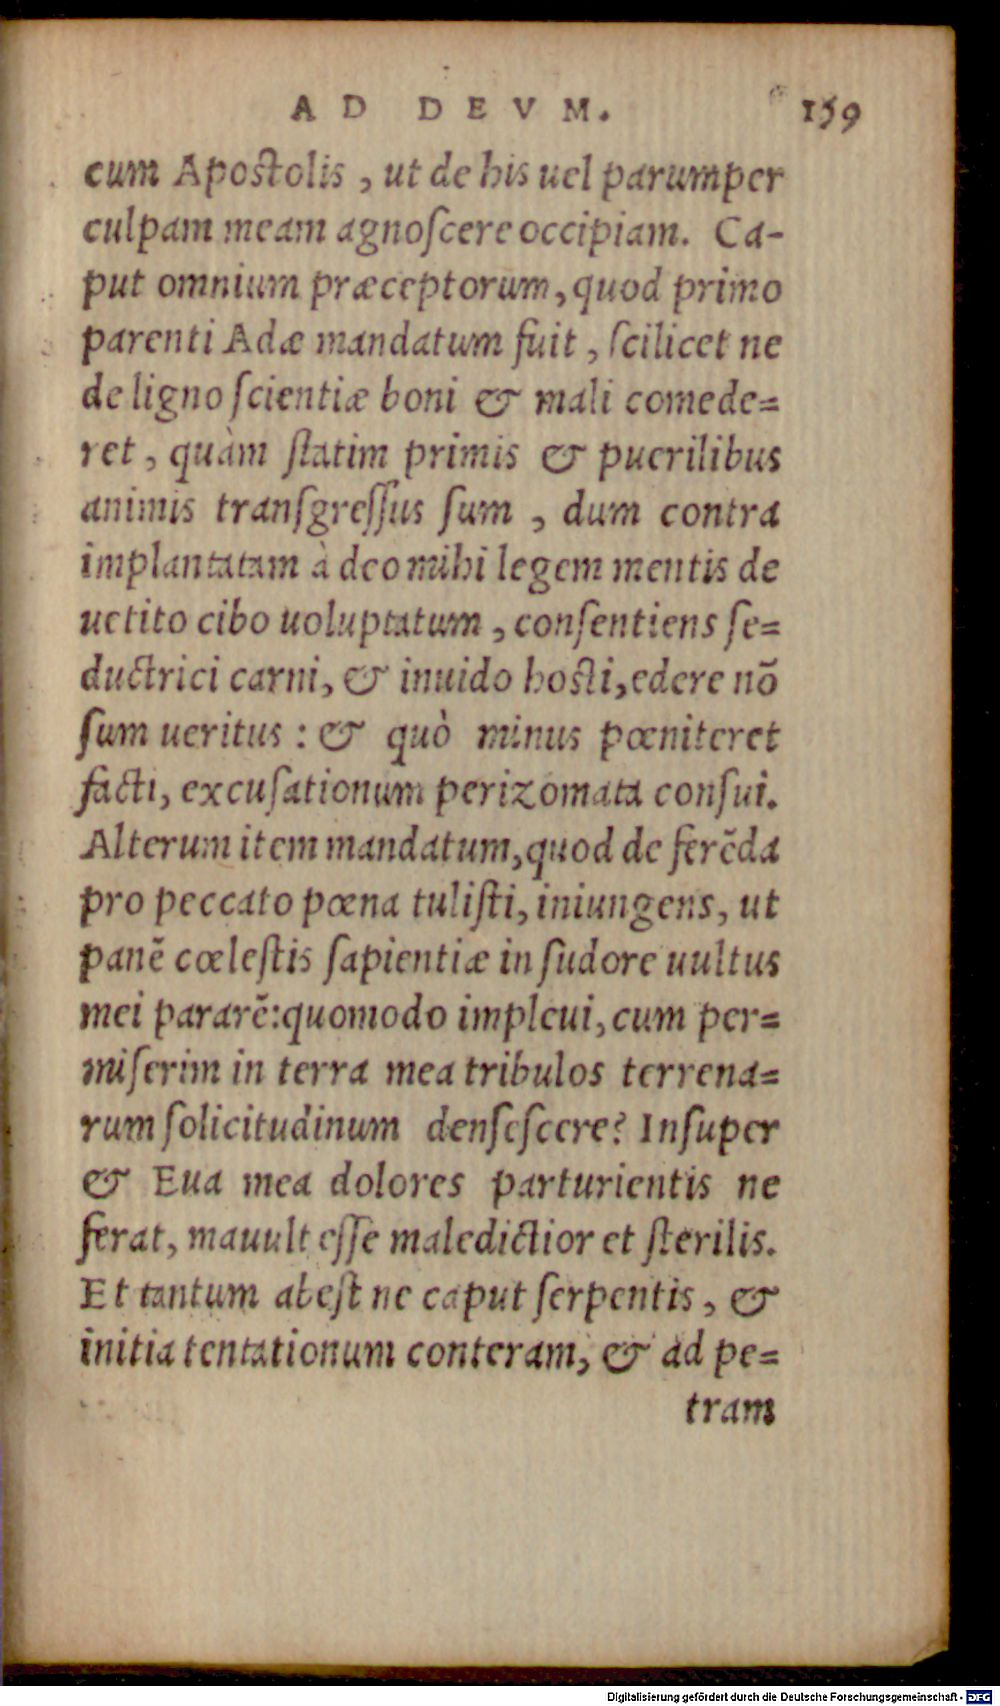 AD DEVM. 159
cum Apostolis, ut de his uel parumper
culpam meam agnoſcere occipiam. Ca-
put omnium præceptorum, quod primo
parenti Adæ mandatum fuit, ſcilicet ne
de ligno ſcientiæ boni & mali comede=
ret, quàm ſtatim primis & puerilibus
animis tranſgreſſus ſum, dum contra
implantatam à deo mihi legem mentis de
uetito cibo uoluptatum, conſentiens ſe=
ductrici carni, & inuido hosti, edere nō
ſum ueritus: & quò minus pœniteret
facti, excuſationum perizomata conſui.
Alterum item mandatum, quod de ferēda
pro peccato pœna tuliſti, iniungens, ut
panē cœleſtis ſapientiæ in ſudore uultus
mei pararē: quomodo impleui, cum per=
miſerim in terra mea tribulos terrena=
rum ſolicitudinum denſeſcere? Inſuper
& Eua mea dolores parturientis ne
ferat, mauult eſſe maledictior et ſterilis.
Et tantum abeſt ne caput ſerpentis, &
initia tentationum conteram, & ad pe=
tram
Digitalisierung gefördert durch die Deutsche Forschungsgemeinschaft - DFG